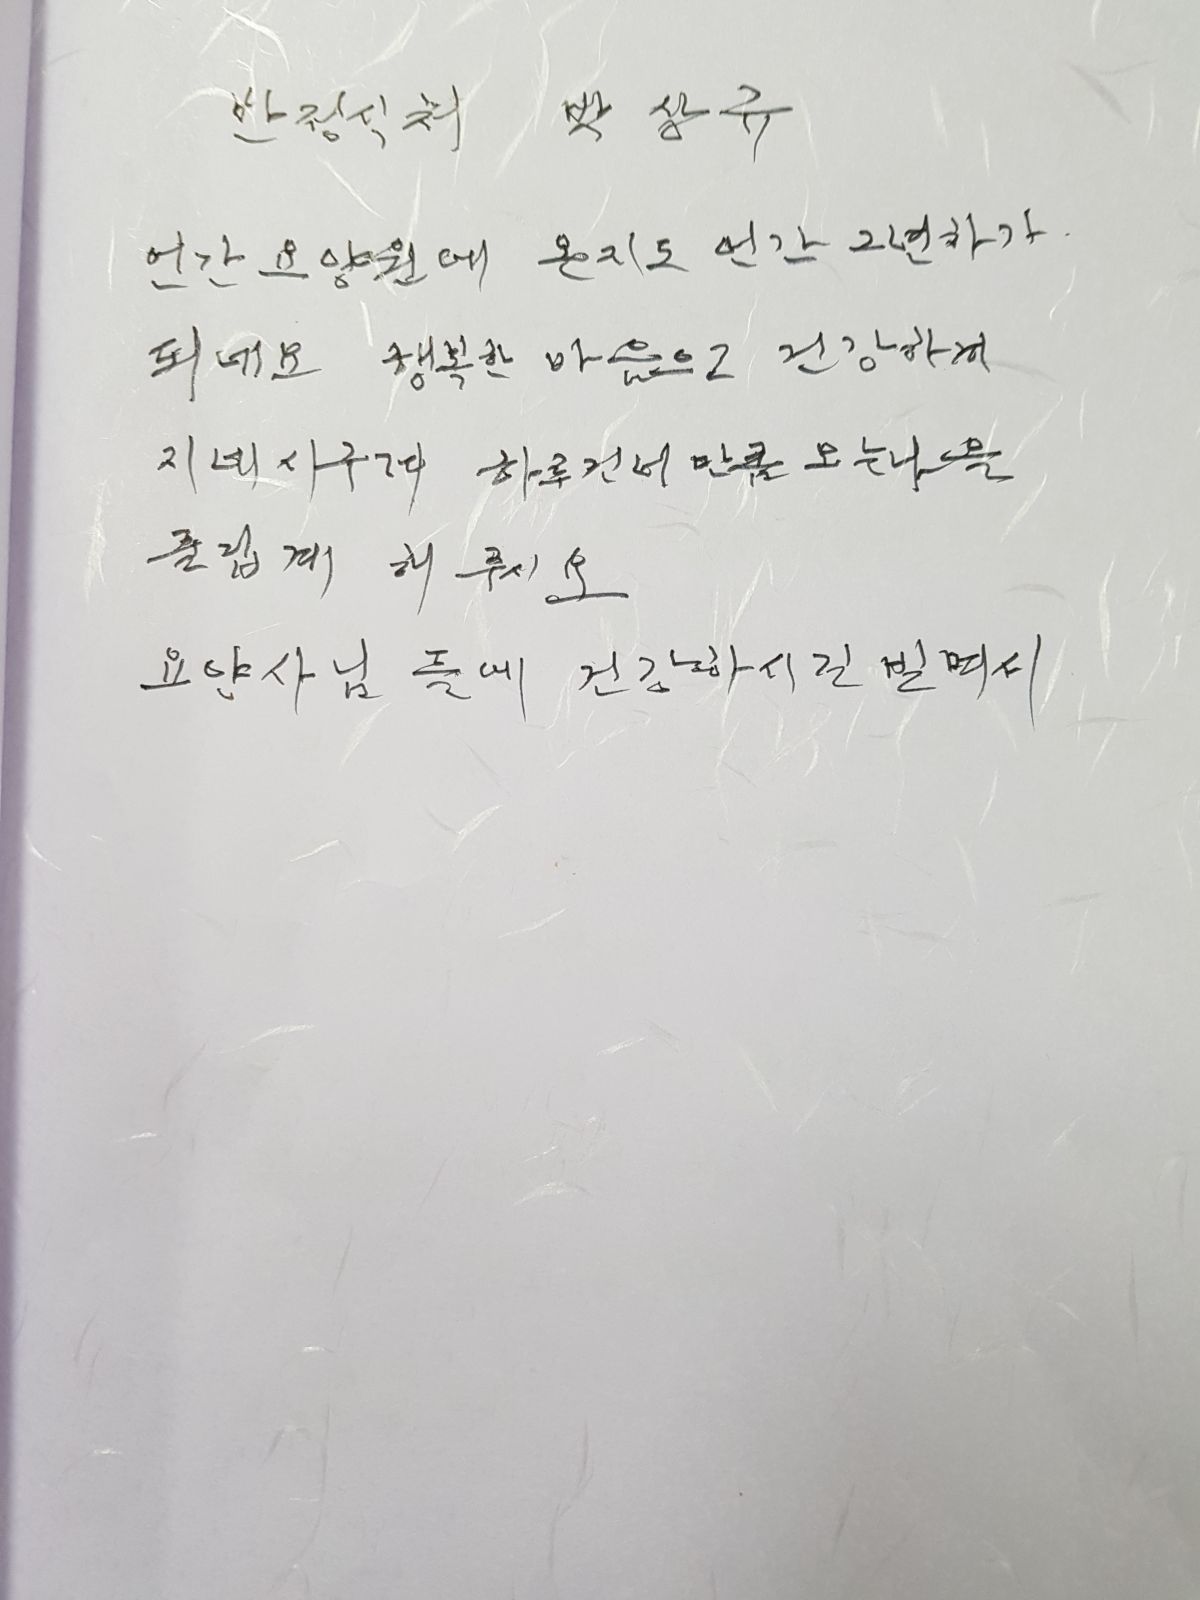 반정식처 박상규
언간 요양원에 온지도 언간 2년차가
되네요 행복한 마음으로 건강하게
지내시구려 하루건너 만큼 오는나를
즐겁게 해주시오
요양사님들에 건강하시길 빌며서